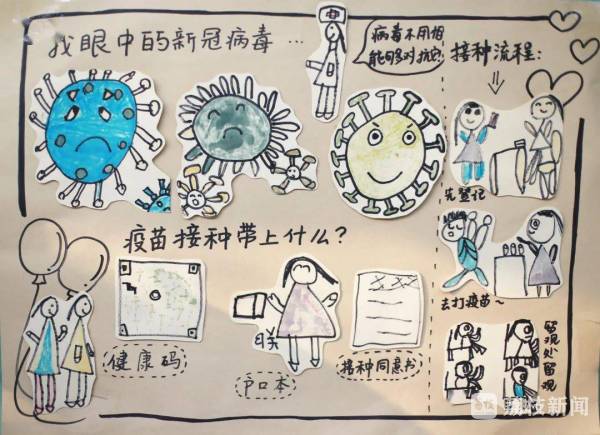 找眼中的新冠病毒…
病毒不用怕
能够对抗它!
接种流程:
先登记
去打疫苗~
留观
处留
观
疫苗接种带上什么?
健康码
户口本
接种同意书
荔枝新闻